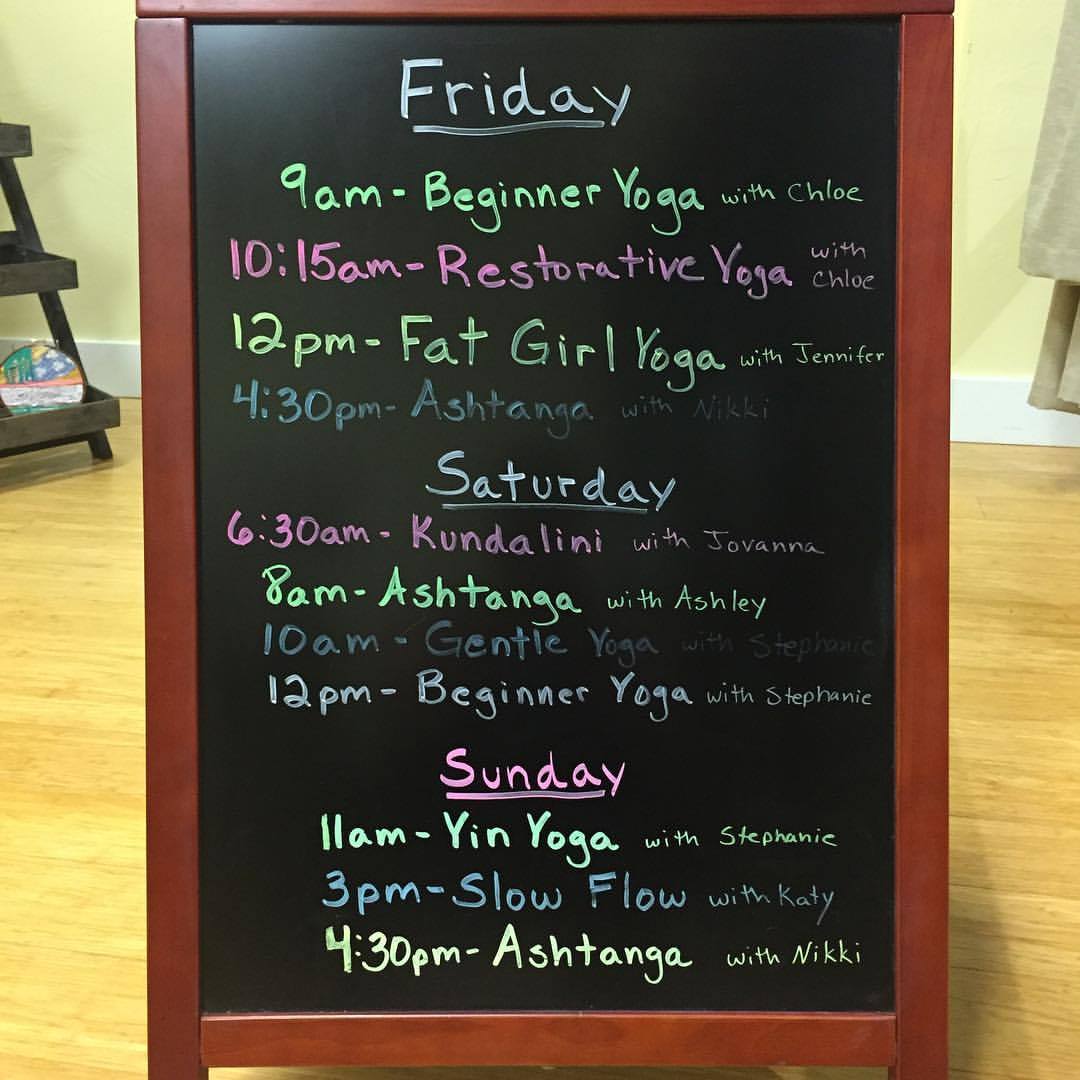 Friday
9am - Beginner Yoga with Chloe
10:15am - Restorative Yoga with Chloe
12pm - Fat Girl Yoga with Jennifer
4:30pm - Ashtanga with Nikki
Saturday
6:30am - Kundalini with Jovanna
8am - Ashtanga with Ashley
10am - Gentle Yoga with Stephanie
12pm - Beginner Yoga with Stephanie
Sunday
11am - Yin Yoga with Stephanie
3pm - Slow Flow with Katy
4:30pm - Ashtanga with Nikki